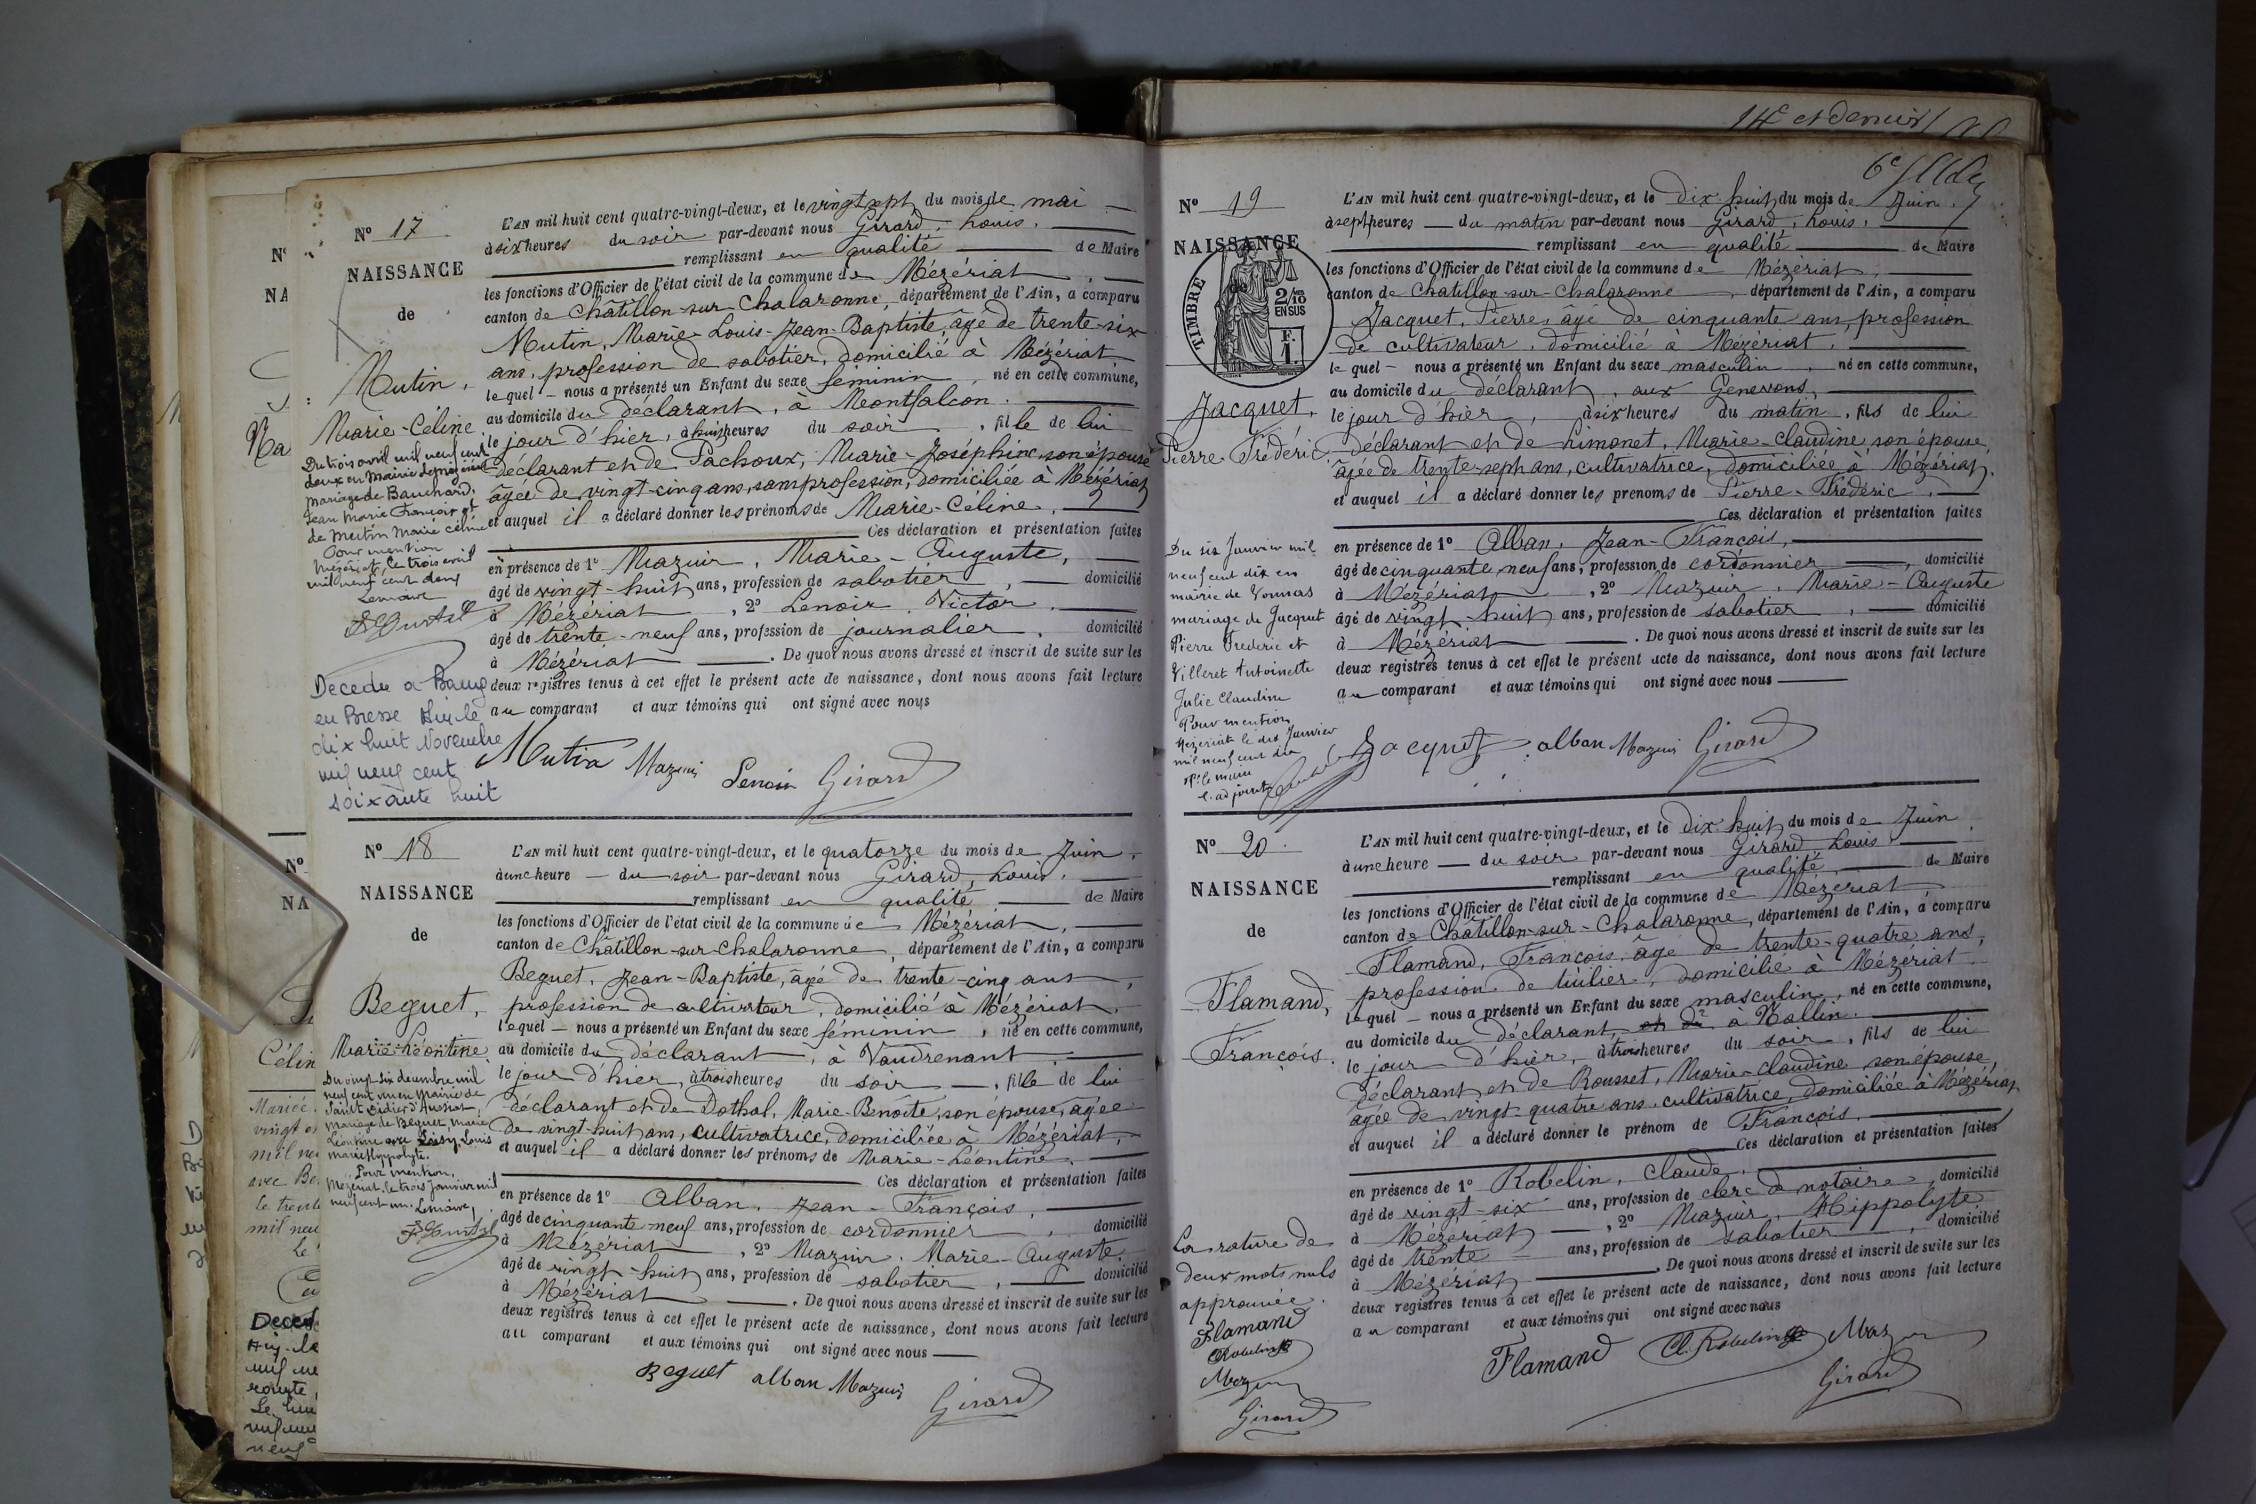 14e et dernier
Nº 17
NAISSANCE
de
Mutin,
Marie-Céline
Du trois avril mil neuf cent
deux en Mairie de Mézériat
mariage de Bauchard,
Jean Marie François et
de Mutin Marie Céline
Pour mention
Mézériat, le trois avril
mil neuf cent deux
Le maire
Décédée a Baugé
en Bresse Ain le
dix huit Novembre
mil neuf cent
soixante huit
L'AN mil huit cent quatre-vingt-deux, et le vingt sept du mois de mai
à six heures du soir par-devant nous Girard, Louis,
remplissant en qualité de Maire
les fonctions d'Officier de l'état civil de la commune de Mézériat,
canton de Châtillon-sur-Chalaronne, département de l'Ain, a comparu
Mutin, Marie-Louis-Jean-Baptiste, âgé de trente-six
ans, profession de sabotier, domicilié à Mézériat
lequel — nous a présenté un Enfant du sexe féminin, né en cette commune,
au domicile du déclarant, à Montfalcon.
le jour d'hier, à huit heures du soir, fille de lui
déclarant et de Pachoux, Marie-Joséphine son épouse
âgée de vingt-cinq ans, sans profession, domiciliée à Mézériat
et auquel il a déclaré donner les prénoms de Marie-Céline.
Ces déclaration et présentation faites
en présence de 1º Mazuir, Marie-Auguste,
âgé de vingt-huit ans, profession de sabotier, domicilié
à Mézériat, 2º Lenoir, Victor,
âgé de trente-neuf ans, profession de journalier, domicilié
à Mézériat. De quoi nous avons dressé et inscrit de suite sur les
deux registres tenus à cet effet le présent acte de naissance, dont nous avons fait lecture
au comparant et aux témoins qui ont signé avec nous
Mutin Mazuir Lenoir Girard
Nº 18
NAISSANCE
de
Beguet,
Marie-Léontine
Du vingt six décembre mil
neuf cent un en Mairie de
Saint Didier d'Aussiat,
Mariage de Beguet, Marie
Léontine avec Louis
Marie Hippolyte.
Pour mention,
Mézériat, le trois Janvier mil
neuf cent Le maire,
L'AN mil huit cent quatre-vingt-deux, et le quatorze du mois de Juin,
à une heure — du soir par-devant nous Girard, Louis,
remplissant en qualité de Maire
les fonctions d'Officier de l'état civil de la commune de Mézériat,
canton de Châtillon-sur-Chalaronne, département de l'Ain, a comparu
Beguet, Jean-Baptiste, âgé de trente-cinq ans,
profession de cultivateur, domicilié à Mézériat,
lequel — nous a présenté un Enfant du sexe féminin, né en cette commune,
au domicile du déclarant, à Vaudrenant,
le jour d'hier, à trois heures du soir —, fille de lui
déclarant et de Dothal, Marie-Benoîte, son épouse, agée
de vingt-huit ans, cultivatrice, domiciliée à Mézériat,
et auquel il a déclaré donner les prénoms de Marie-Léontine.
Ces déclaration et présentation faites
en présence de 1º Alban, Jean-François,
âgé de cinquante neuf ans, profession de cordonnier, domicilié
à Mézériat, 2º Mazuir, Marie-Auguste,
âgé de vingt-huit ans, profession de sabotier, domicilié
à Mézériat. De quoi nous avons dressé et inscrit de suite sur les
deux registres tenus à cet effet le présent acte de naissance, dont nous avons fait lecture
au comparant et aux témoins qui ont signé avec nous
Beguet alban Mazuir
Girard
Nº 19
NAISSANCE
de
TIMBRE
2/10 EN SUS
F. 1.
Jacquet,
Pierre Frédéric
Du six Janvier mil
neuf cent dix en
mairie de Vonnas
mariage de Jacquet
Pierre Frederic et
Villeret Antoinette
Julie Claudine
Pour mention
Mézériat le dix Janvier
mil neuf cent dix
Pr le maire
l'adjoint
6e
L'AN mil huit cent quatre-vingt-deux, et le dix-huit du mois de Juin,
à sept heures — du matin par-devant nous Girard, Louis,
remplissant en qualité de Maire
les fonctions d'Officier de l'état civil de la commune de Mézériat,
canton de Châtillon-sur-Chalaronne, département de l'Ain, a comparu
Jacquet, Pierre, âgé de cinquante ans, profession
de cultivateur, domicilié à Mézériat,
lequel — nous a présenté un Enfant du sexe masculin, né en cette commune,
au domicile du déclarant, aux Genevons,
le jour d'hier, à six heures du matin, fils de lui
déclarant et de Limonet, Marie-Claudine son épouse,
âgée de trente-sept ans, cultivatrice, domiciliée à Mézériat,
et auquel il a déclaré donner les prenoms de Pierre-Frédéric.
Ces déclaration et présentation faites
en présence de 1º Alban, Jean-François,
âgé de cinquante neuf ans, profession de cordonnier, domicilié
à Mézériat, 2º Mazuir, Marie-Auguste
âgé de vingt-huit ans, profession de sabotier, domicilié
à Mézériat. De quoi nous avons dressé et inscrit de suite sur les
deux registres tenus à cet effet le présent acte de naissance, dont nous avons fait lecture
au comparant et aux témoins qui ont signé avec nous
Jacquet alban Mazuir Girard
Nº 20
NAISSANCE
de
Flamand,
François.
La rature de
deux mots nuls
approuvée.
Flamand
Robelin
Mazuir
Girard
L'AN mil huit cent quatre-vingt-deux, et le dix-huit du mois de Juin,
à une heure — du soir par-devant nous Girard Louis
remplissant en qualité de Maire
les fonctions d'Officier de l'état civil de la commune de Mézériat,
canton de Châtillon-sur-Chalaronne, département de l'Ain, a comparu
Flamand, François, âgé de trente-quatre ans,
profession de tuilier, domicilié à Mézériat
lequel — nous a présenté un Enfant du sexe masculin, né en cette commune,
au domicile du déclarant, à Vallin.
le jour d'hier, à trois heures du soir, fils de lui
déclarant et de Rousset, Marie-Claudine son épouse,
âgée de vingt-quatre ans, cultivatrice, domiciliée à Mézériat
et auquel il a déclaré donner le prénom de François.
Ces déclaration et présentation faites
en présence de 1º Robelin, Claude,
âgé de vingt-six ans, profession de clerc de notaire, domicilié
à Mézériat, 2º Mazuir, Hippolyte
âgé de trente ans, profession de sabotier, domicilié
à Mézériat. De quoi nous avons dressé et inscrit de suite sur les
deux registres tenus à cet effet le présent acte de naissance, dont nous avons fait lecture
au comparant et aux témoins qui ont signé avec nous
Flamand Cl. Robelin Mazuir
Girard